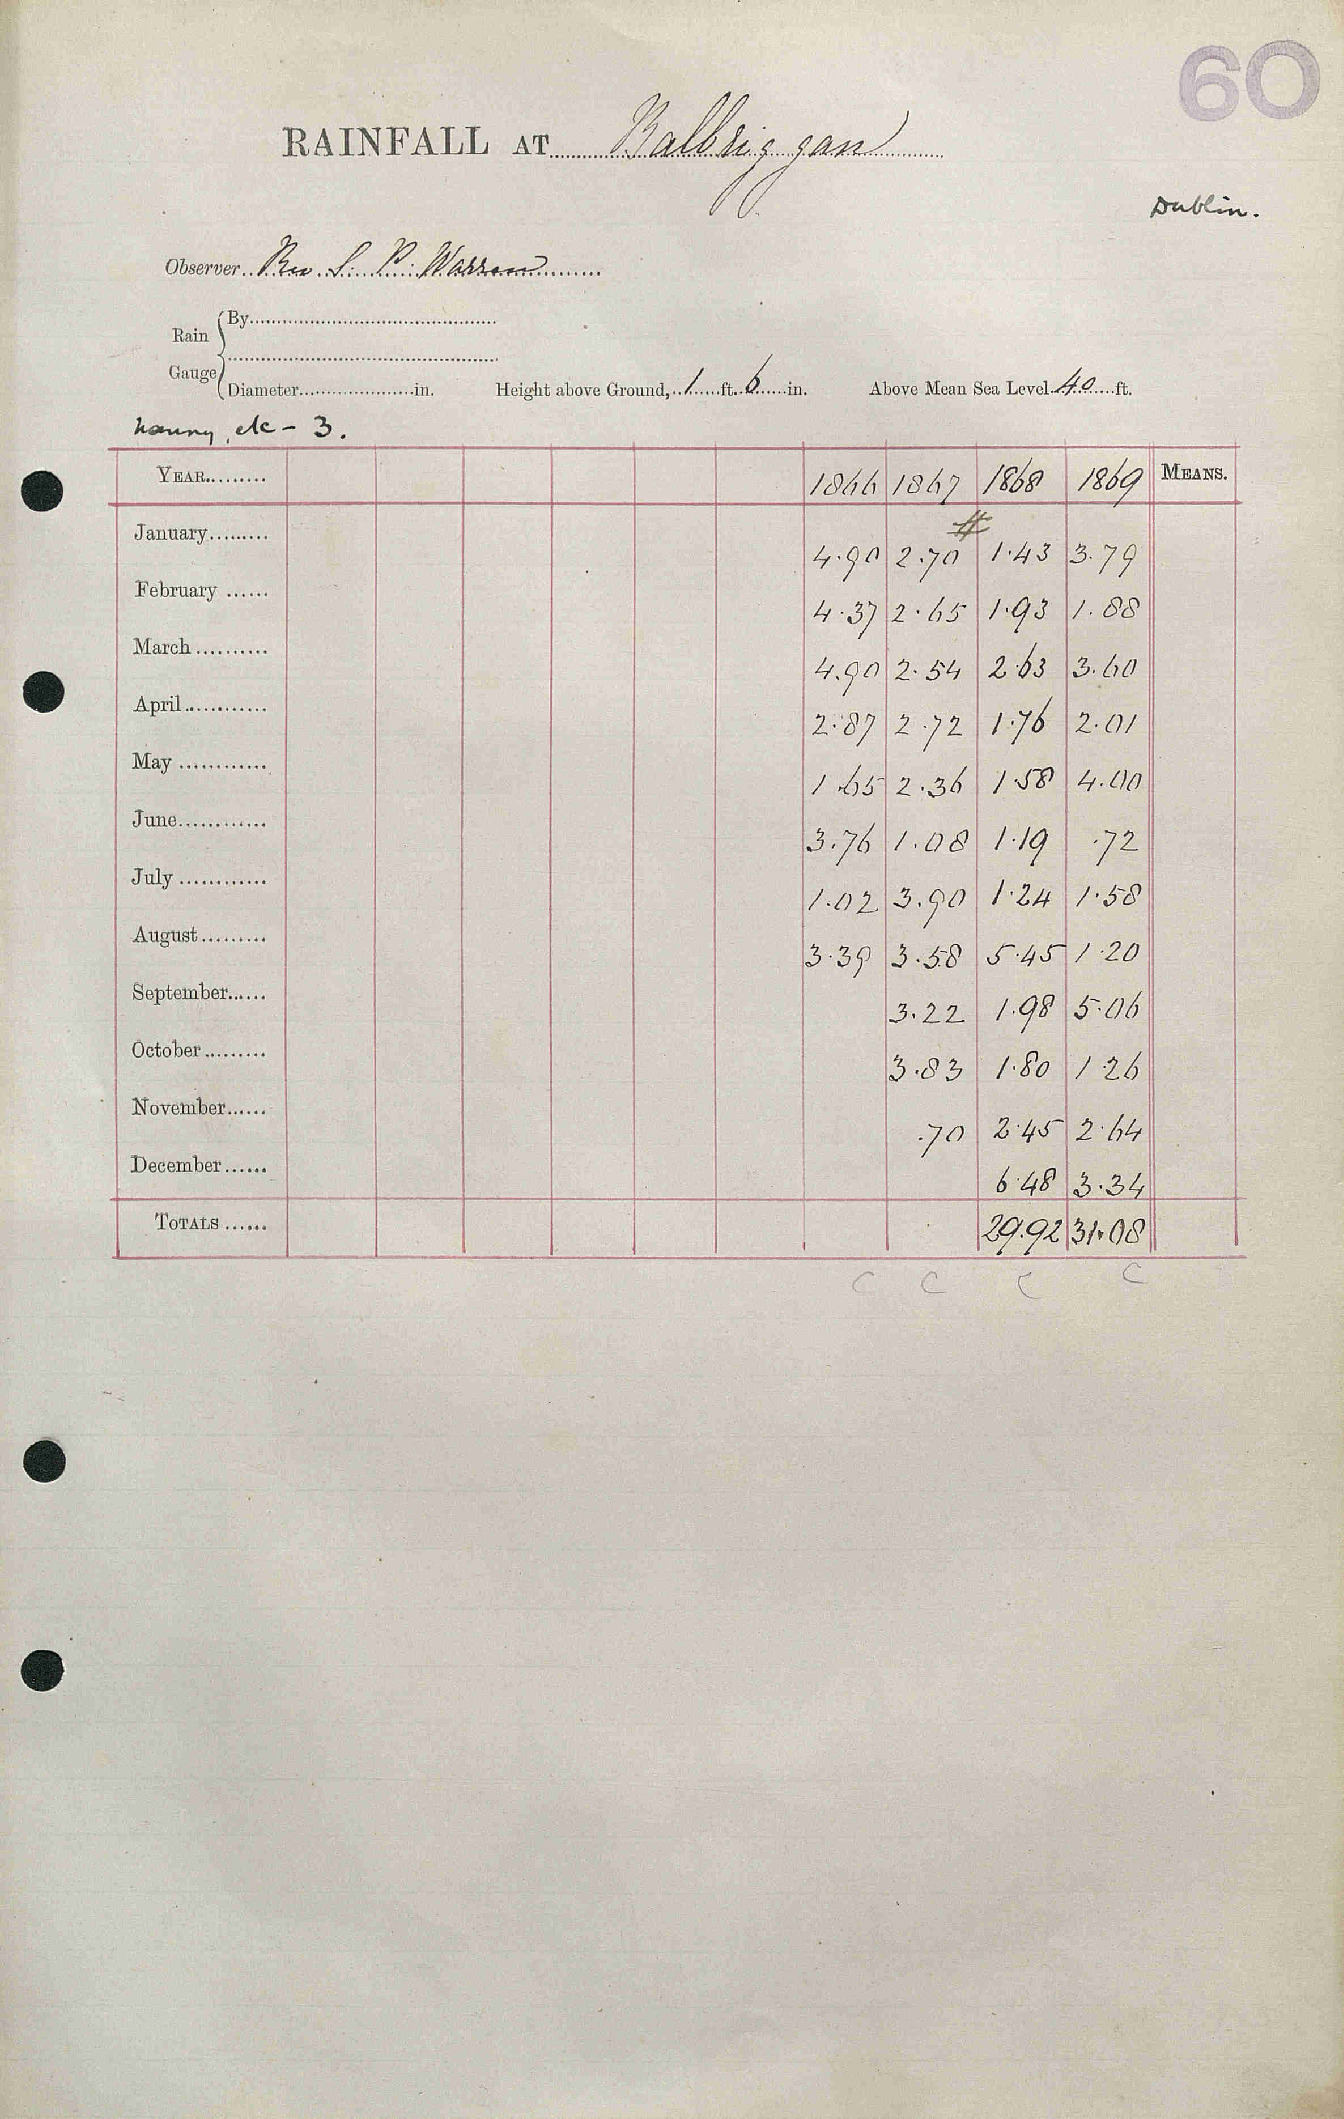 60
RAINFALL AT Balbriggan
Dublin.
Observer Rev S. P. Warren
Rain Gauge
By
Diameter in. Height above Ground, 1 ft. 6 in. Above Mean Sea Level 40 ft.
Nanny, etc - 3.
YEAR 1866 1867 1868 1869 MEANS.
#
January 4.90 2.70 1.43 3.79
February 4.37 2.65 1.93 1.88
March 4.90 2.54 2.63 3.60
April 2.87 2.72 1.76 2.01
May 1.65 2.36 1.58 4.00
June 3.76 1.08 1.19 .72
July 1.02 3.90 1.24 1.58
August 3.39 3.58 5.45 1.20
September 3.22 1.98 5.06
October 3.83 1.80 1.26
November .70 2.45 2.64
December 6.48 3.34
TOTALS 29.92 31.08
C C C C